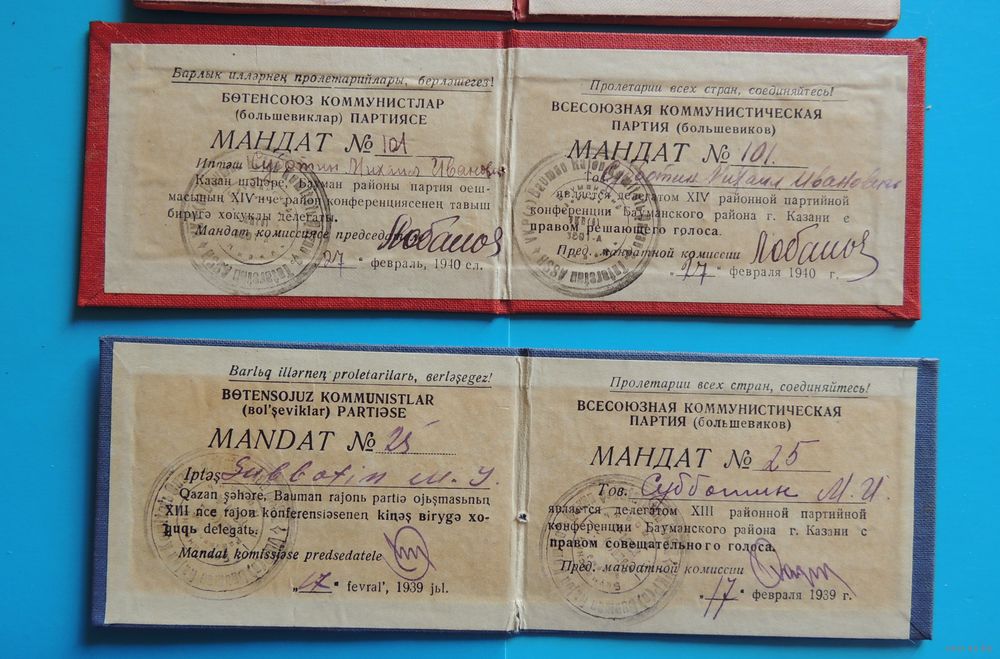 Барлык илләрнең пролетарийлары, берләшегез!
БӨТЕНСОЮЗ КОММУНИСТЛАР
(большевиклар) ПАРТИЯСЕ
МАНДАТ № 101
Иптәш Субботин Михаил Иванович
Казан шәһәре, Бауман районы партия оеш-
масының XIV-нче район конференциясенең тавыш
бирүгә хокуклы делегаты.
Мандат комиссиясе председателе Лобанов
„27“ февраль, 1940 ел.
Пролетарии всех стран, соединяйтесь!
ВСЕСОЮЗНАЯ КОММУНИСТИЧЕСКАЯ
ПАРТИЯ (большевиков)
МАНДАТ № 101.
Тов. Субботин Михаил Иванович
является делегатом XIV районной партийной
конференции Бауманского района г. Казани с
правом решающего голоса.
Пред. мандатной комиссии Лобанов
„27“ февраля 1940 г.
Barlьq illərneꞑ proletarilarь, вerləşegez!
BƟTENSOJUZ KOMMUNISTLAR
(вol'şeviklar) PARTIƏSE
MANDAT № 25
Iptəş Subbotin M. I.
Qazan şəhəre, Bauman rajonь partiə ojьşmasьnьꞑ
XIII nce rajon konferensiəseneꞑ kiꞑəş вirygə xo-
quqlь delegatь.
Mandat komissiəse predsedatele
„17“ fevral', 1939 jьl.
Пролетарии всех стран, соединяйтесь!
ВСЕСОЮЗНАЯ КОММУНИСТИЧЕСКАЯ
ПАРТИЯ (большевиков)
МАНДАТ № 25
Тов. Субботин М. И.
является делегатом XIII районной партийной
конференции Бауманского района г. Казани с
правом совещательного голоса.
Пред. мандатной комиссии
„17“ февраля 1939 г.